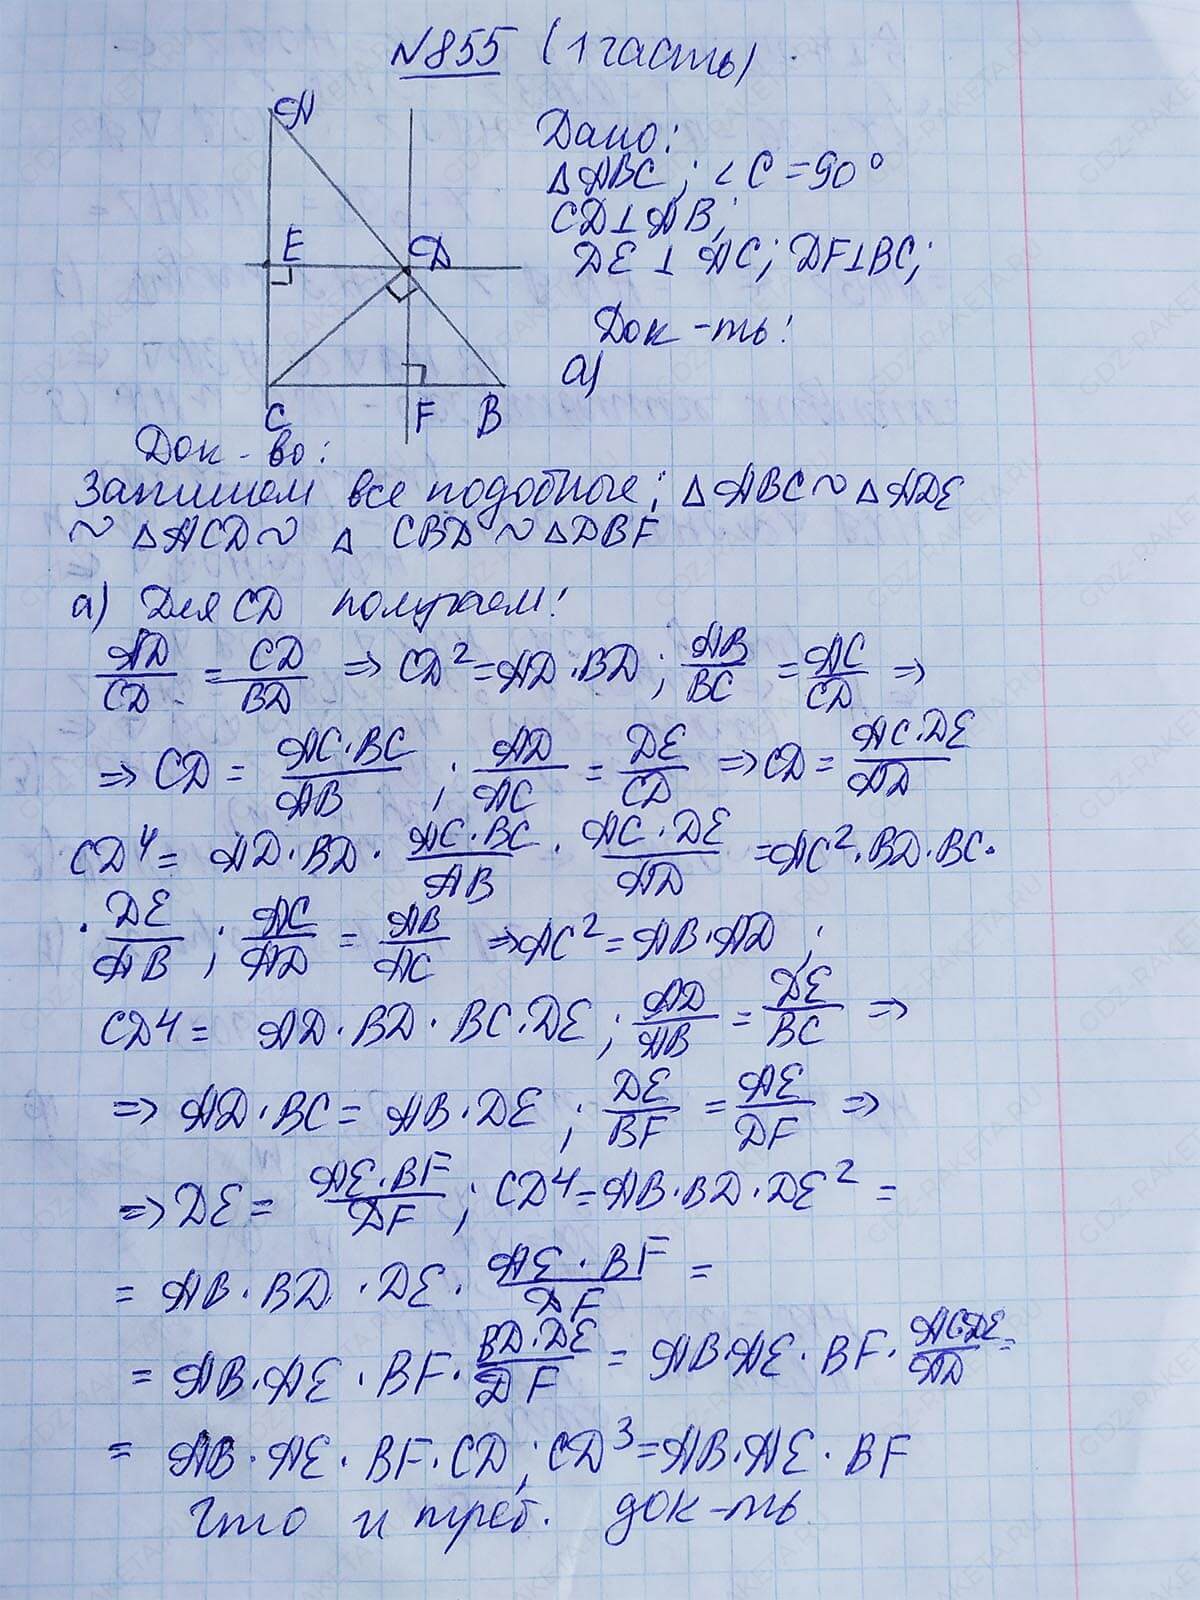 №855 (1 часть)
A
E
D
C
F
B
Дано:
△ABC; ∠C=90°
CD⊥AB;
DE ⊥ AC; DF⊥BC;
Док-ть:
а)
Док-во:
Запишем все подобные; △ABC ~ △ADE
~ △ACD ~ △ CBD ~ △DBF
а) Для CD получаем:
AD/CD = CD/BD ⇒ CD²=AD·BD; AB/BC = AC/CD ⇒
⇒ CD = AC·BC/AB ; AD/AC = DE/CD ⇒ CD = AC·DE/AD
CD⁴ = AD·BD· AC·BC/AB · AC·DE/AD = AC²·BD·BC·
· DE/AB ; AC/AD = AB/AC ⇒ AC² = AB·AD ;
CD4 = AD·BD·BC·DE ; AD/AB = DE/BC ⇒
⇒ AD·BC = AB·DE ; DE/BF = AE/DF ⇒
⇒ DE = AE·BF/DF ; CD4 = AB·BD·DE² =
= AB·BD·DE· AE·BF/DF =
= AB·AE·BF· BD·DE/DF = AB·AE·BF· AC·DE/AD =
= AB·AE·BF·CD; CD³=AB·AE·BF
Что и треб. док-ть
GDZ-RAKETA.RU